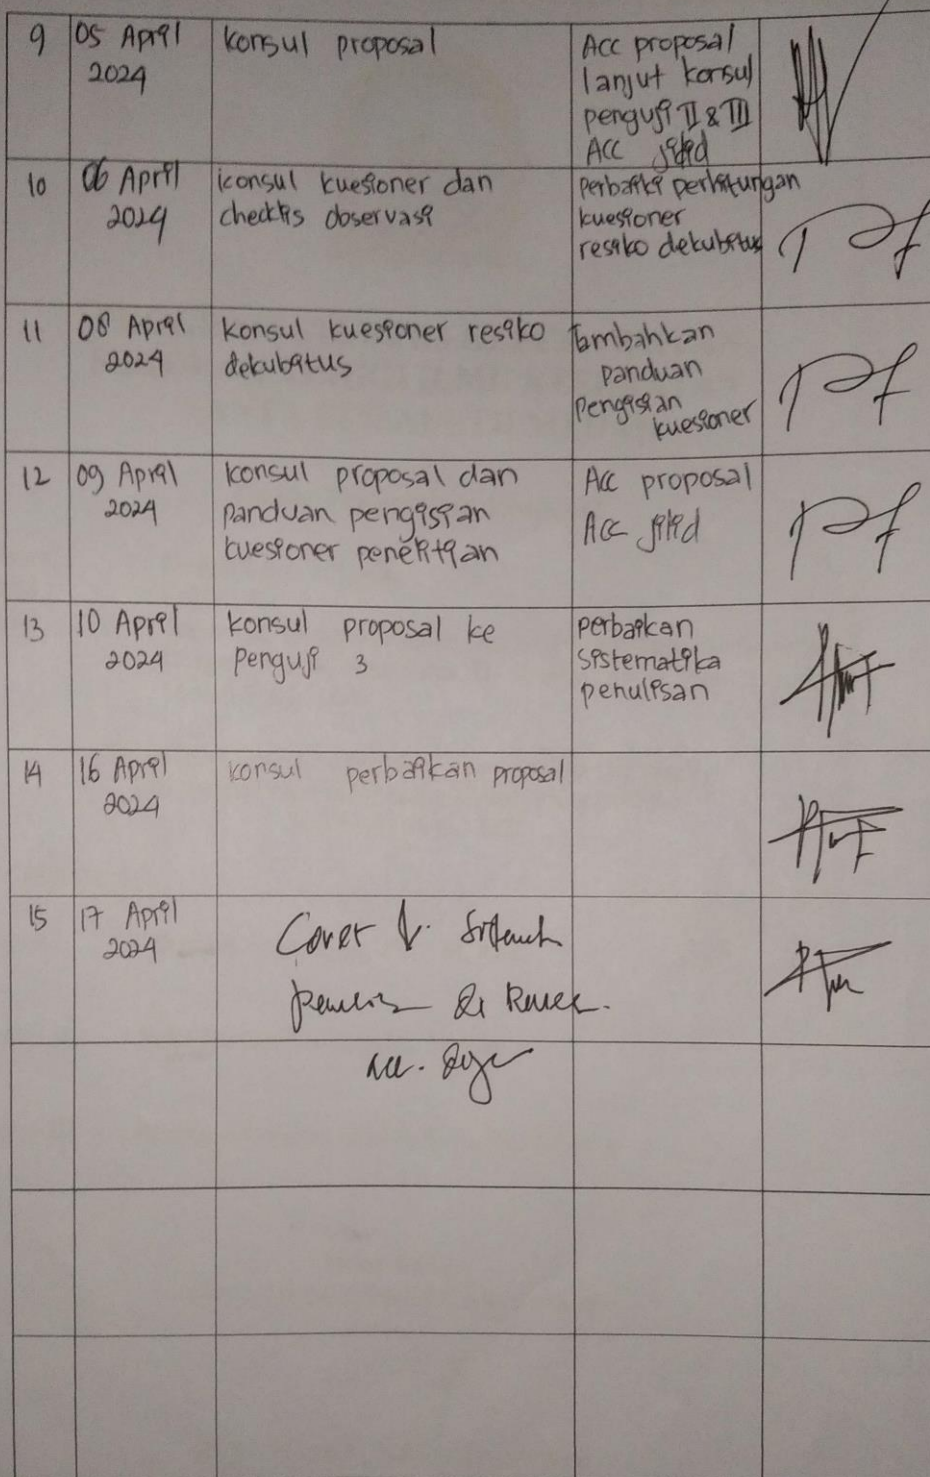 9 05 April 2024 konsul proposal Acc proposal
lanjut konsul
penguji II & III
Acc jilid
10 06 April 2024 konsul kuesioner dan
checklis observasi
perbaiki perhitungan
kuesioner
resiko dekubitus
11 08 April 2024 konsul kuesioner resiko
dekubitus
Tambahkan
panduan
pengisian
kuesioner
12 09 April 2024 konsul proposal dan
panduan pengisian
kuesioner penelitian
Acc proposal
Acc jilid
13 10 April 2024 konsul proposal ke
penguji 3
perbaikan
sistematika
penulisan
14 16 April 2024 konsul perbaikan proposal
15 17 April 2024 Cover